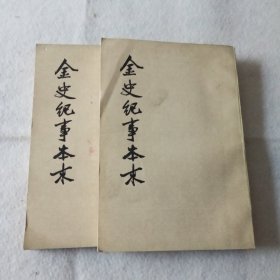 金史纪事本末
金史纪事本末